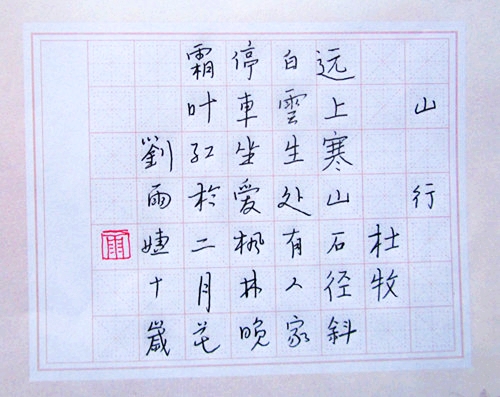 山行
杜牧
远上寒山石径斜
白雲生处有人家
停車坐爱枫林晚
霜叶红於二月花
劉雨婕十歲
雨